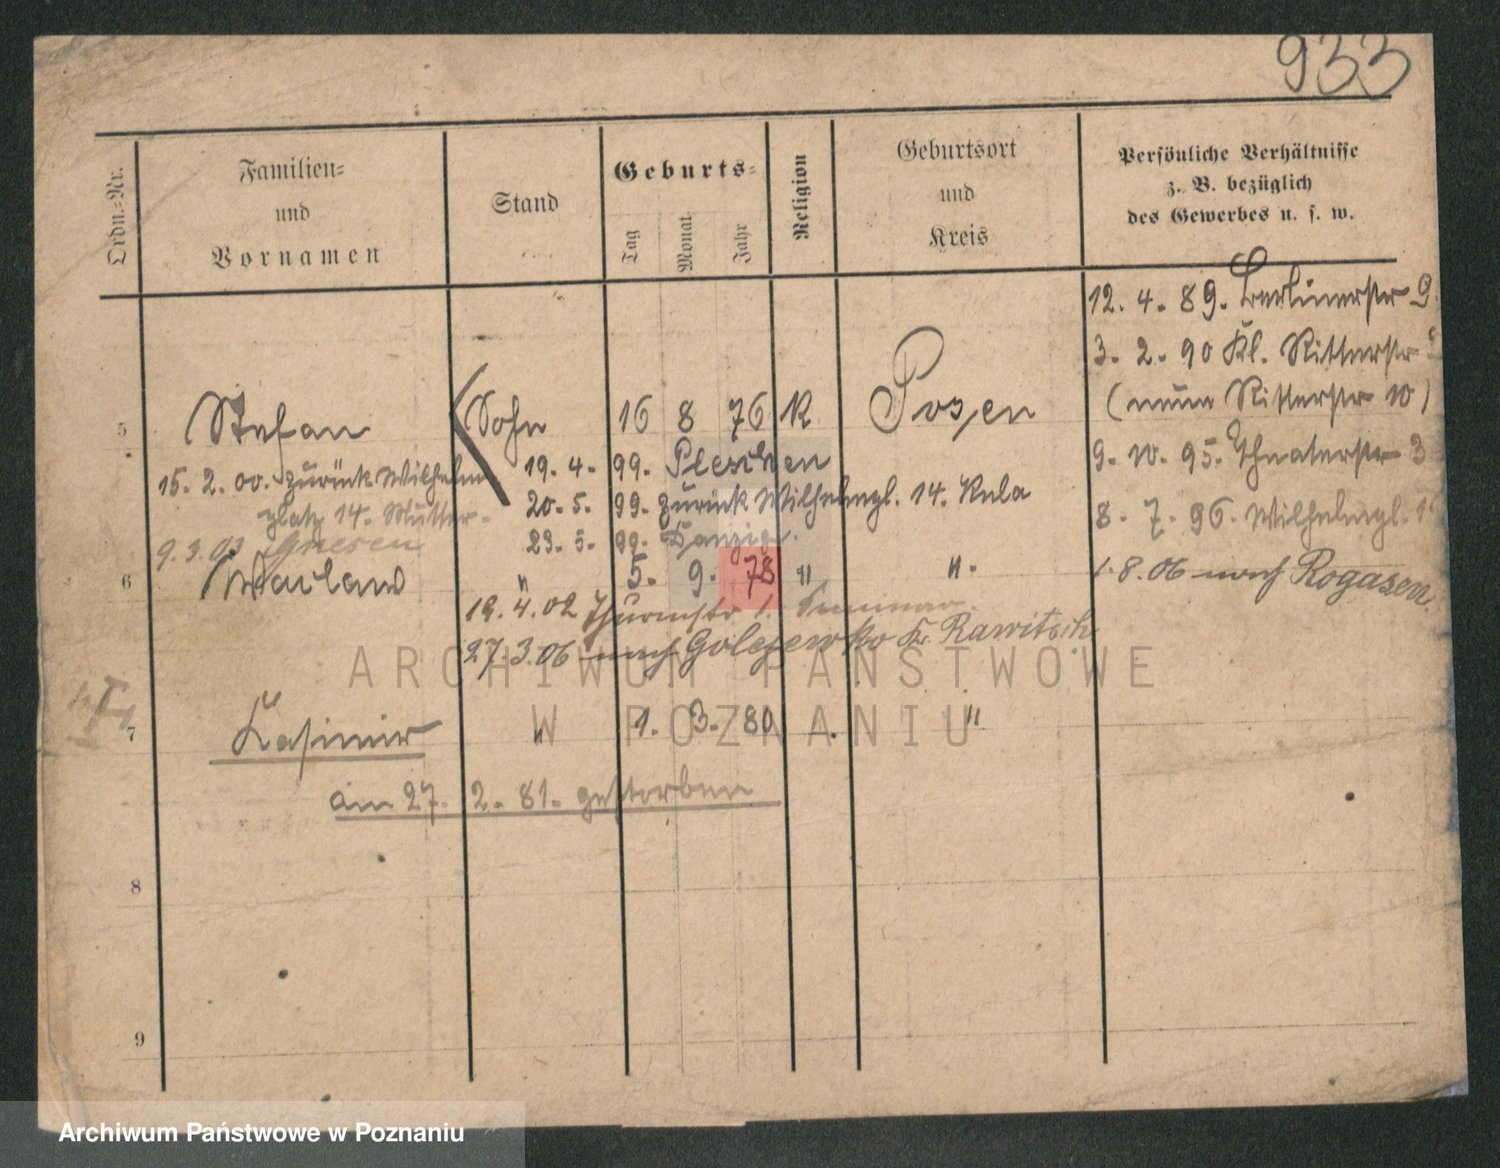 933
Ordn.-Nr.
Familien- und Vornamen
Stand
Geburts-
Tag Monat Jahr
Religion
Geburtsort und Kreis
Persönliche Verhältnisse
z. B. bezüglich
des Gewerbes u. s. w.
12. 4. 89. Berlinerstr 9
3. 2. 90 Kl. Ritterstr
(neue Ritterstr 10)
5 Stefan Sohn 16 8 76 K. Posen
9. 10. 95. Theaterstr 3
15. 2. 00. zurück Wilhelm
19. 4. 99. Pleschen
platz 14. Mutter.
20. 5. 99. zurück Wilhelmpl. 14. Kula
8. 7. 96. Wilhelmpl. 1
9. 3. 03 Gnesen
23. 5. 99. Danzig.
6 Waclaw " 5. 9. 78 " ".
1. 8. 06 nach Rogasen.
19. 4. 02 Thurmstr 1. Seminar.
27. 3. 06 nach Golejewko Kr. Rawitsch
ARCHIWUM PAŃSTWOWE
W POZNANIU
7 Kasimir " 1. 3. 80 "
am 27. 2. 81. gestorben
8
9
Archiwum Państwowe w Poznaniu